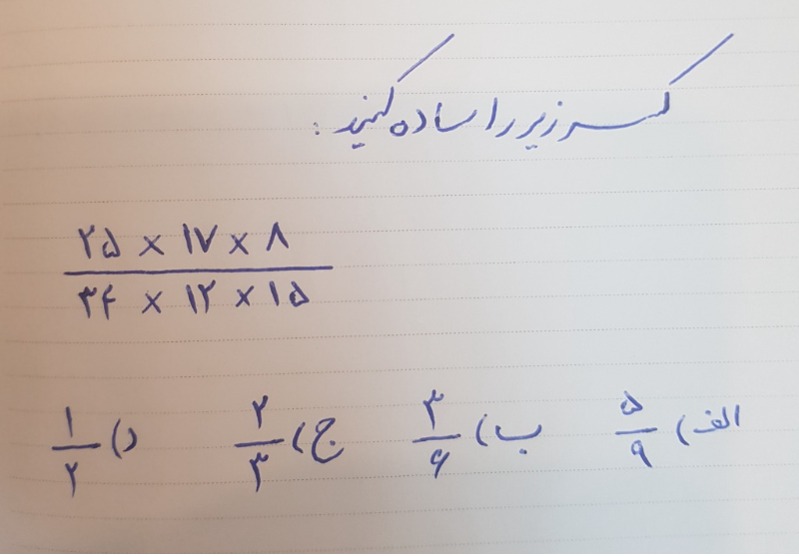 کسر زیر را ساده کنید :
۲۵ × ۱۷ × ۸
۳۴ × ۱۲ × ۱۵
الف) ۵/۹ ب) ۳/۶ ج) ۲/۳ د) ۱/۲